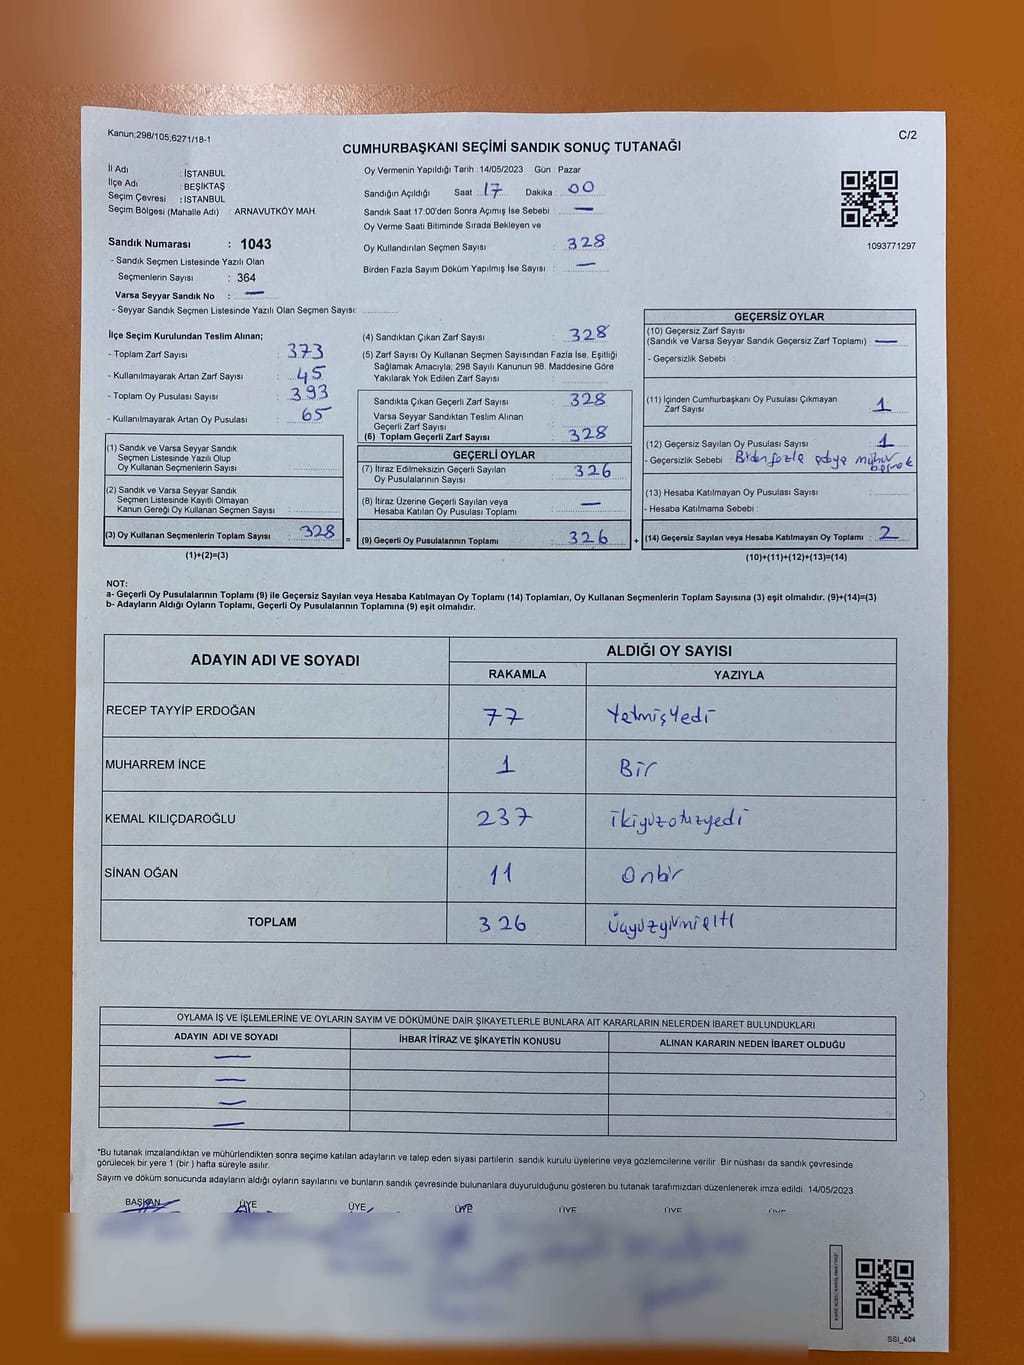 Kanun;298/105;6271/18-1
C/2
CUMHURBAŞKANI SEÇİMİ SANDIK SONUÇ TUTANAĞI
İl Adı : İSTANBUL
İlçe Adı : BEŞİKTAŞ
Seçim Çevresi : İSTANBUL
Seçim Bölgesi (Mahalle Adı) : ARNAVUTKÖY MAH.
Sandık Numarası : 1043
- Sandık Seçmen Listesinde Yazılı Olan
Seçmenlerin Sayısı : 364
Varsa Seyyar Sandık No : —
- Seyyar Sandık Seçmen Listesinde Yazılı Olan Seçmen Sayısı:
Oy Vermenin Yapıldığı Tarih : 14/05/2023 Gün : Pazar
Sandığın Açıldığı Saat : 17 Dakika : 00
Sandık Saat 17:00'den Sonra Açımış İse Sebebi : —
Oy Verme Saati Bitiminde Sırada Bekleyen ve
Oy Kullandırılan Seçmen Sayısı : 328
Birden Fazla Sayım Döküm Yapılmış İse Sayısı : —
1093771297
İlçe Seçim Kurulundan Teslim Alınan;
- Toplam Zarf Sayısı : 373
- Kullanılmayarak Artan Zarf Sayısı : 45
- Toplam Oy Pusulası Sayısı : 393
- Kullanılmayarak Artan Oy Pusulası : 65
(1) Sandık ve Varsa Seyyar Sandık
Seçmen Listesinde Yazılı Olup
Oy Kullanan Seçmenlerin Sayısı :
(2) Sandık ve Varsa Seyyar Sandık
Seçmen Listesinde Kayıtlı Olmayan
Kanun Gereği Oy Kullanan Seçmen Sayısı :
(3) Oy Kullanan Seçmenlerin Toplam Sayısı : 328
(1)+(2)=(3)
=
(4) Sandıktan Çıkan Zarf Sayısı : 328
(5) Zarf Sayısı Oy Kullanan Seçmen Sayısından Fazla İse, Eşitliği
Sağlamak Amacıyla; 298 Sayılı Kanunun 98. Maddesine Göre
Yakılarak Yok Edilen Zarf Sayısı :
Sandıkta Çıkan Geçerli Zarf Sayısı : 328
Varsa Seyyar Sandıktan Teslim Alınan
Geçerli Zarf Sayısı :
(6) Toplam Geçerli Zarf Sayısı : 328
GEÇERLİ OYLAR
(7) İtiraz Edilmeksizin Geçerli Sayılan
Oy Pusulalarının Sayısı : 326
(8) İtiraz Üzerine Geçerli Sayılan veya
Hesaba Katılan Oy Pusulası Toplamı : —
(9) Geçerli Oy Pusulalarının Toplamı : 326
+
GEÇERSİZ OYLAR
(10) Geçersiz Zarf Sayısı
(Sandık ve Varsa Seyyar Sandık Geçersiz Zarf Toplamı) : —
- Geçersizlik Sebebi :
(11) İçinden Cumhurbaşkanı Oy Pusulası Çıkmayan
Zarf Sayısı : 1
(12) Geçersiz Sayılan Oy Pusulası Sayısı : 1
- Geçersizlik Sebebi : Birden fazla adaya mühür
basmak
(13) Hesaba Katılmayan Oy Pusulası Sayısı :
- Hesaba Katılmama Sebebi :
(14) Geçersiz Sayılan veya Hesaba Katılmayan Oy Toplamı : 2
(10)+(11)+(12)+(13)=(14)
NOT:
a- Geçerli Oy Pusulalarının Toplamı (9) ile Geçersiz Sayılan veya Hesaba Katılmayan Oy Toplamı (14) Toplamları, Oy Kullanan Seçmenlerin Toplam Sayısına (3) eşit olmalıdır. (9)+(14)=(3)
b- Adayların Aldığı Oyların Toplamı, Geçerli Oy Pusulalarının Toplamına (9) eşit olmalıdır.
ADAYIN ADI VE SOYADI
ALDIĞI OY SAYISI
RAKAMLA YAZIYLA
RECEP TAYYİP ERDOĞAN 77 Yetmişyedi
MUHARREM İNCE 1 Bir
KEMAL KILIÇDAROĞLU 237 ikiyüzotuzyedi
SİNAN OĞAN 11 Onbir
TOPLAM 326 Üçyüzyirmialtı
OYLAMA İŞ VE İŞLEMLERİNE VE OYLARIN SAYIM VE DÖKÜMÜNE DAİR ŞİKAYETLERLE BUNLARA AİT KARARLARIN NELERDEN İBARET BULUNDUKLARI
ADAYIN ADI VE SOYADI İHBAR İTİRAZ VE ŞİKAYETİN KONUSU ALINAN KARARIN NEDEN İBARET OLDUĞU
—
—
—
—
*Bu tutanak imzalandıktan ve mühürlendikten sonra seçime katılan adayların ve talep eden siyasi partilerin sandık kurulu üyelerine veya gözlemcilerine verilir. Bir nüshası da sandık çevresinde
görülecek bir yere 1 (bir) hafta süreyle asılır.
Sayım ve döküm sonucunda adayların aldığı oyların sayılarını ve bunların sandık çevresinde bulunanlara duyurulduğunu gösteren bu tutanak tarafımızdan düzenlenerek imza edildi. 14/05/2023
BAŞKAN ÜYE ÜYE ÜYE ÜYE ÜYE ÜYE
SSI_404